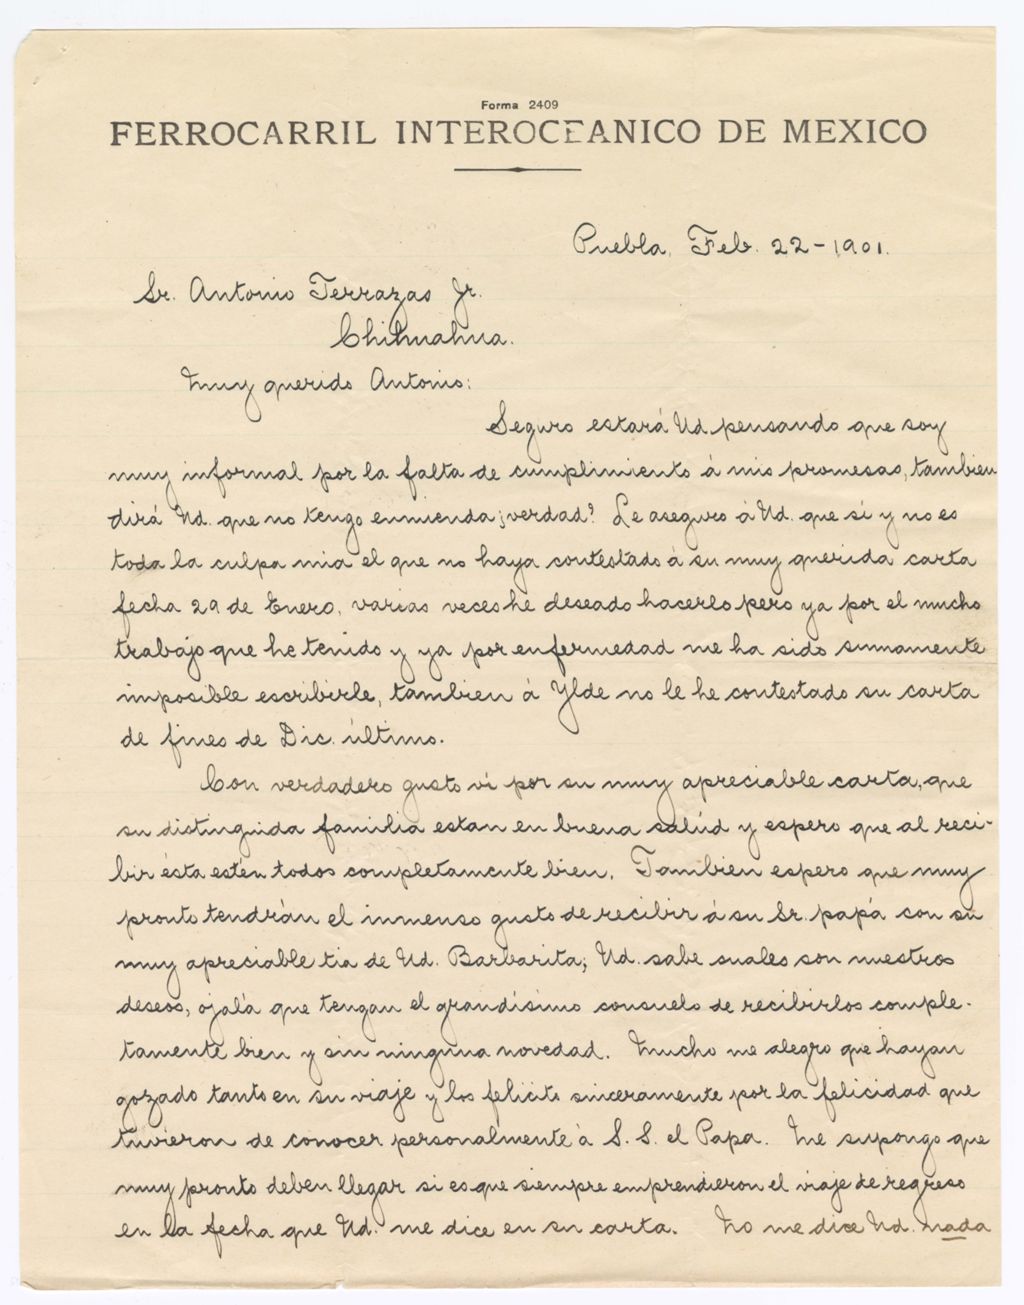 Forma 2409
FERROCARRIL INTEROCEANICO DE MEXICO
Puebla, Feb. 22-1901.
Sr. Antonio Terrazas Jr.
Chihuahua.
Muy querido Antonio:
Seguro estará Ud. pensando que soy
muy informal por la falta de cumplimiento á mis promesas, tambien
dirá Ud. que no tengo enmienda ¿verdad? Le aseguro á Ud. que sí y no es
toda la culpa mia el que no haya contestado á su muy querida carta
fecha 29 de Enero, varias veces he deseado hacerlo pero ya por el mucho
trabajo que he tenido y ya por enfermedad me ha sido sumamente
imposible escribirle, tambien á Ylde no le he contestado su carta
de fines de Dic. último.
Con verdadero gusto ví por su muy apreciable carta, que
su distinguida familia estan en buena salúd y espero que al reci-
bir ésta estén todos completamente bien. Tambien espero que muy
pronto tendrán el inmenso gusto de recibir á su Sr. papá con su
muy apreciable tia de Ud. Barbarita; Ud. sabe cuales son nuestros
deseos, ojalá que tengan el grandísimo consuelo de recibirlos comple-
tamente bien y sin ninguna novedad. Mucho me alegro que hayan
gozado tanto en su viaje y los felicito sinceramente por la felicidad que
tuvieron de conocer personalmente á S. S. el Papa. Me supongo que
muy pronto deben llegar si es que siempre emprendieron el viaje de regreso
en la fecha que Ud. me dice en su carta. No me dice Ud. nada